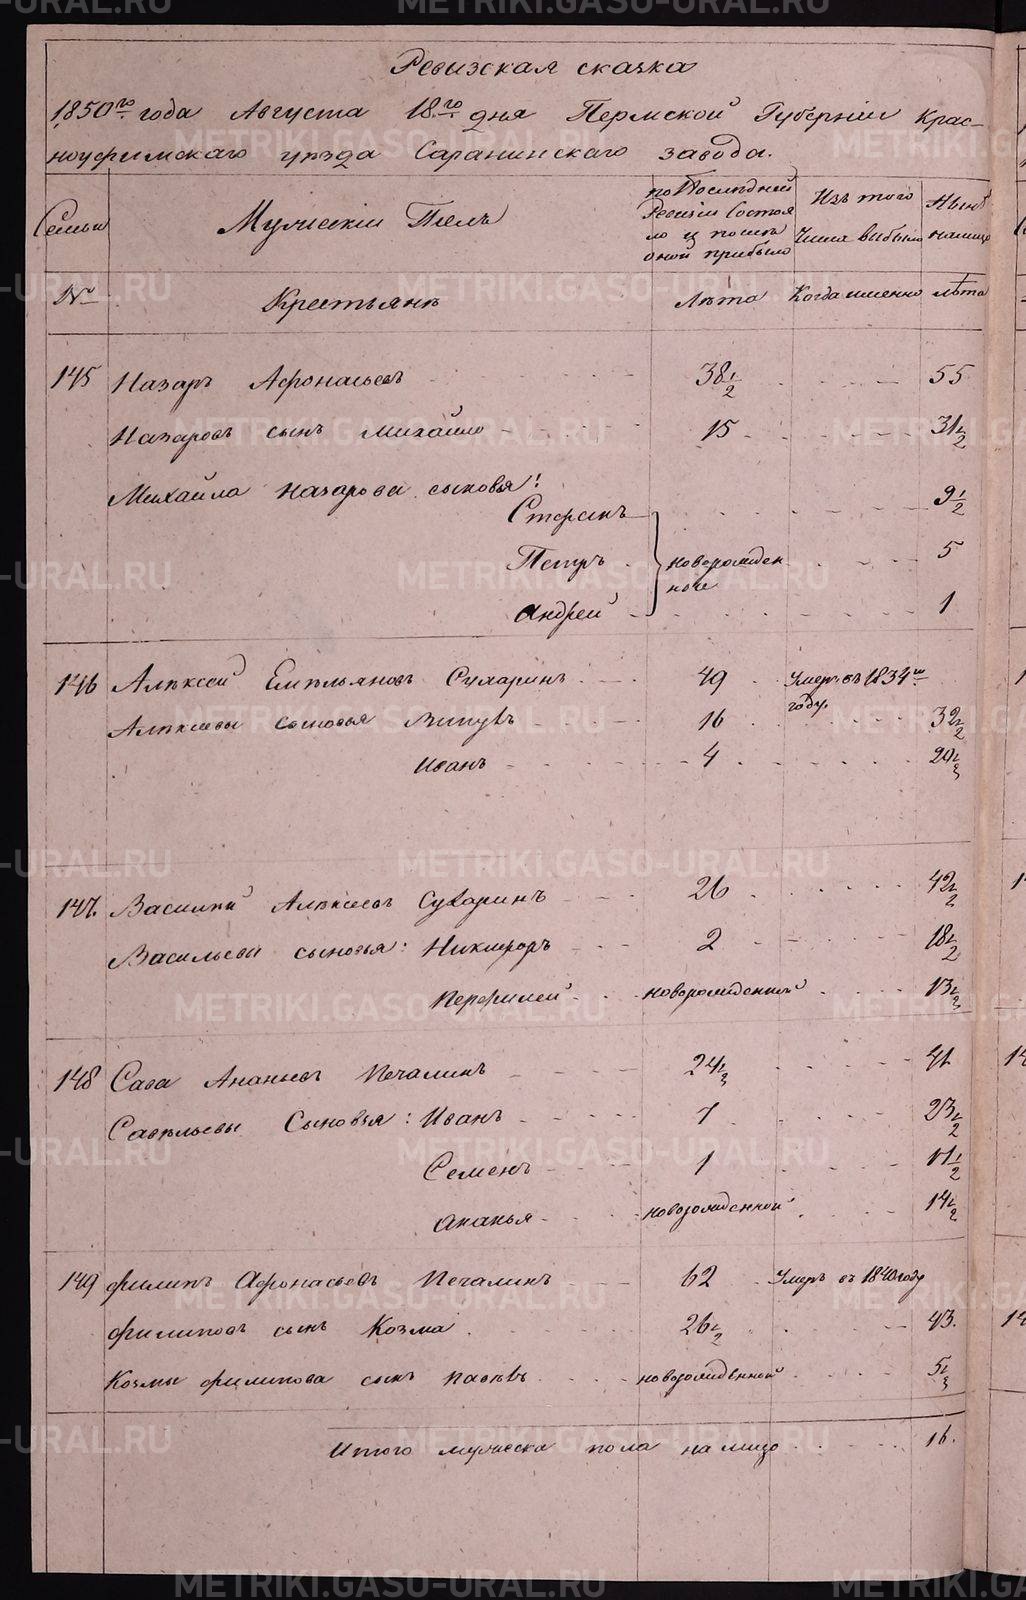 Ревизская сказка
1850го года Августа 18го дня Пермской Губернии Крас-
ноуфимскаго уезда Саранинскаго завода.
Семьи
Мужескій Полъ
по Последней Ревизіи Состояло и после оной прибыло
Изъ того Числа выбыло
Ныне налицо
№
Крестьяне
Лета
Когда именно
лета
145 Назаръ Афонасьевъ 38½ 55
Назаровъ сынъ Михайло 15 31½
Михайла Назарова сыновья: 9½
Стефанъ
Петръ новорожденные 5
Андрей 1
146 Алексей Емельяновъ Сухаринъ 49 Умеръ въ 1834м году.
Алексеевы сыновья 16 32½
Иванъ 4 20½
147. Василий Алексеевъ Сухаринъ 26 42½
Васильевы сыновья: Никифоръ 2 18½
Перфилей новорожденный 13½
148 Сава Ананьевъ Печалинъ 24½ 41
Савельевы Сыновья: Иванъ 7 23½
Семенъ 1 17½
Ананья новорожденной 14½
149 Филипъ Афонасьевъ Печалинъ 62 Умеръ въ 1840 году
Филиповъ сынъ Козма 26½ 43.
Козмы Филипова сынъ новорожденной 5½
Итого мужеска пола на лицо 16.
METRIKI.GASO-URAL.RU